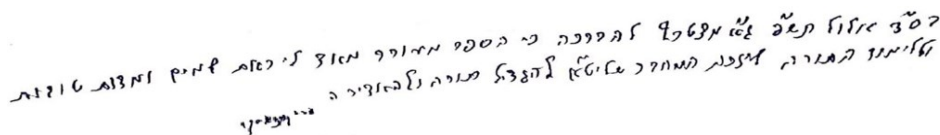 בס"ד אלול תש"פ גא"מ מצטרף להברכה כי הספר מעורר מאוד ליראת שמים ומדות טובות
ולימוד התורה, שיזכה המחבר שליט"א להגדיל תורה ולהאדירה